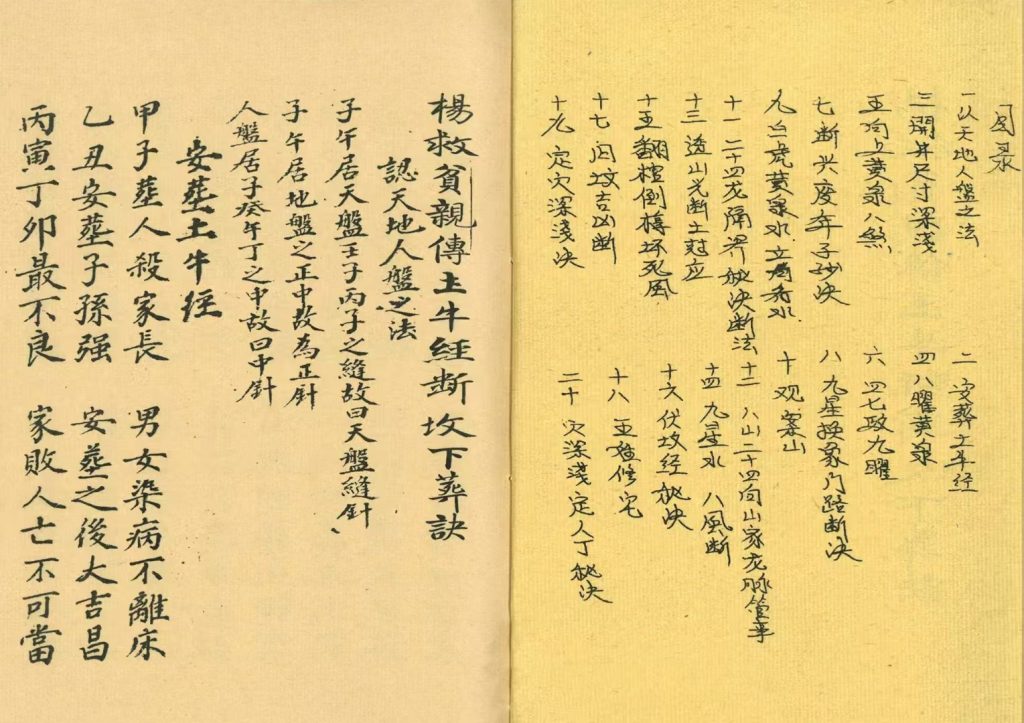 目录
一 认天地人盘之法
二 安葬土牛经
三 開井尺寸深浅
四 八曜黄泉
五 向上黄泉八煞
六 四七政九曜
七 断兴废年子砂决
八 九星换象门路断决
九 白虎黄泉水立局秀水
十 观案山
十一 二十四龙隔界秘决断法
十二 八山二十四向山家龙脉管事
十三 透山光断土冠应
十四 九星水 八风断
十五 翻棺倒槨坏死風
十六 伏坟经秘决
十七 因坟吉凶断
十八 五姓修宅
十九 定穴深浅决
二十 穴深淺定人丁秘决
楊救貧親傳土牛經断坟下葬訣
認天地人盤之法
子午居天盤壬子丙子之縫故曰天盤縫針、
子午居地盤之正中故為正針
人盤居子癸午丁之中故曰中針
安塟土牛经
甲子塟人殺家長 男女染病不離床
乙丑安塟子孫强 安塟之後大吉昌
丙寅丁卯最不良 家敗人亡不可當